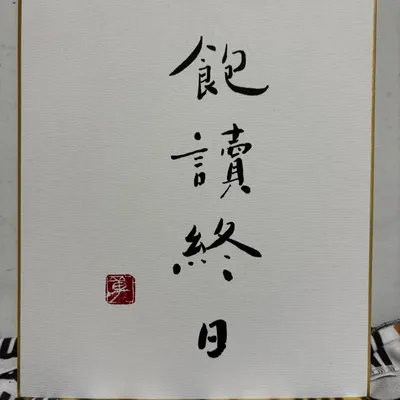 飽讀終日